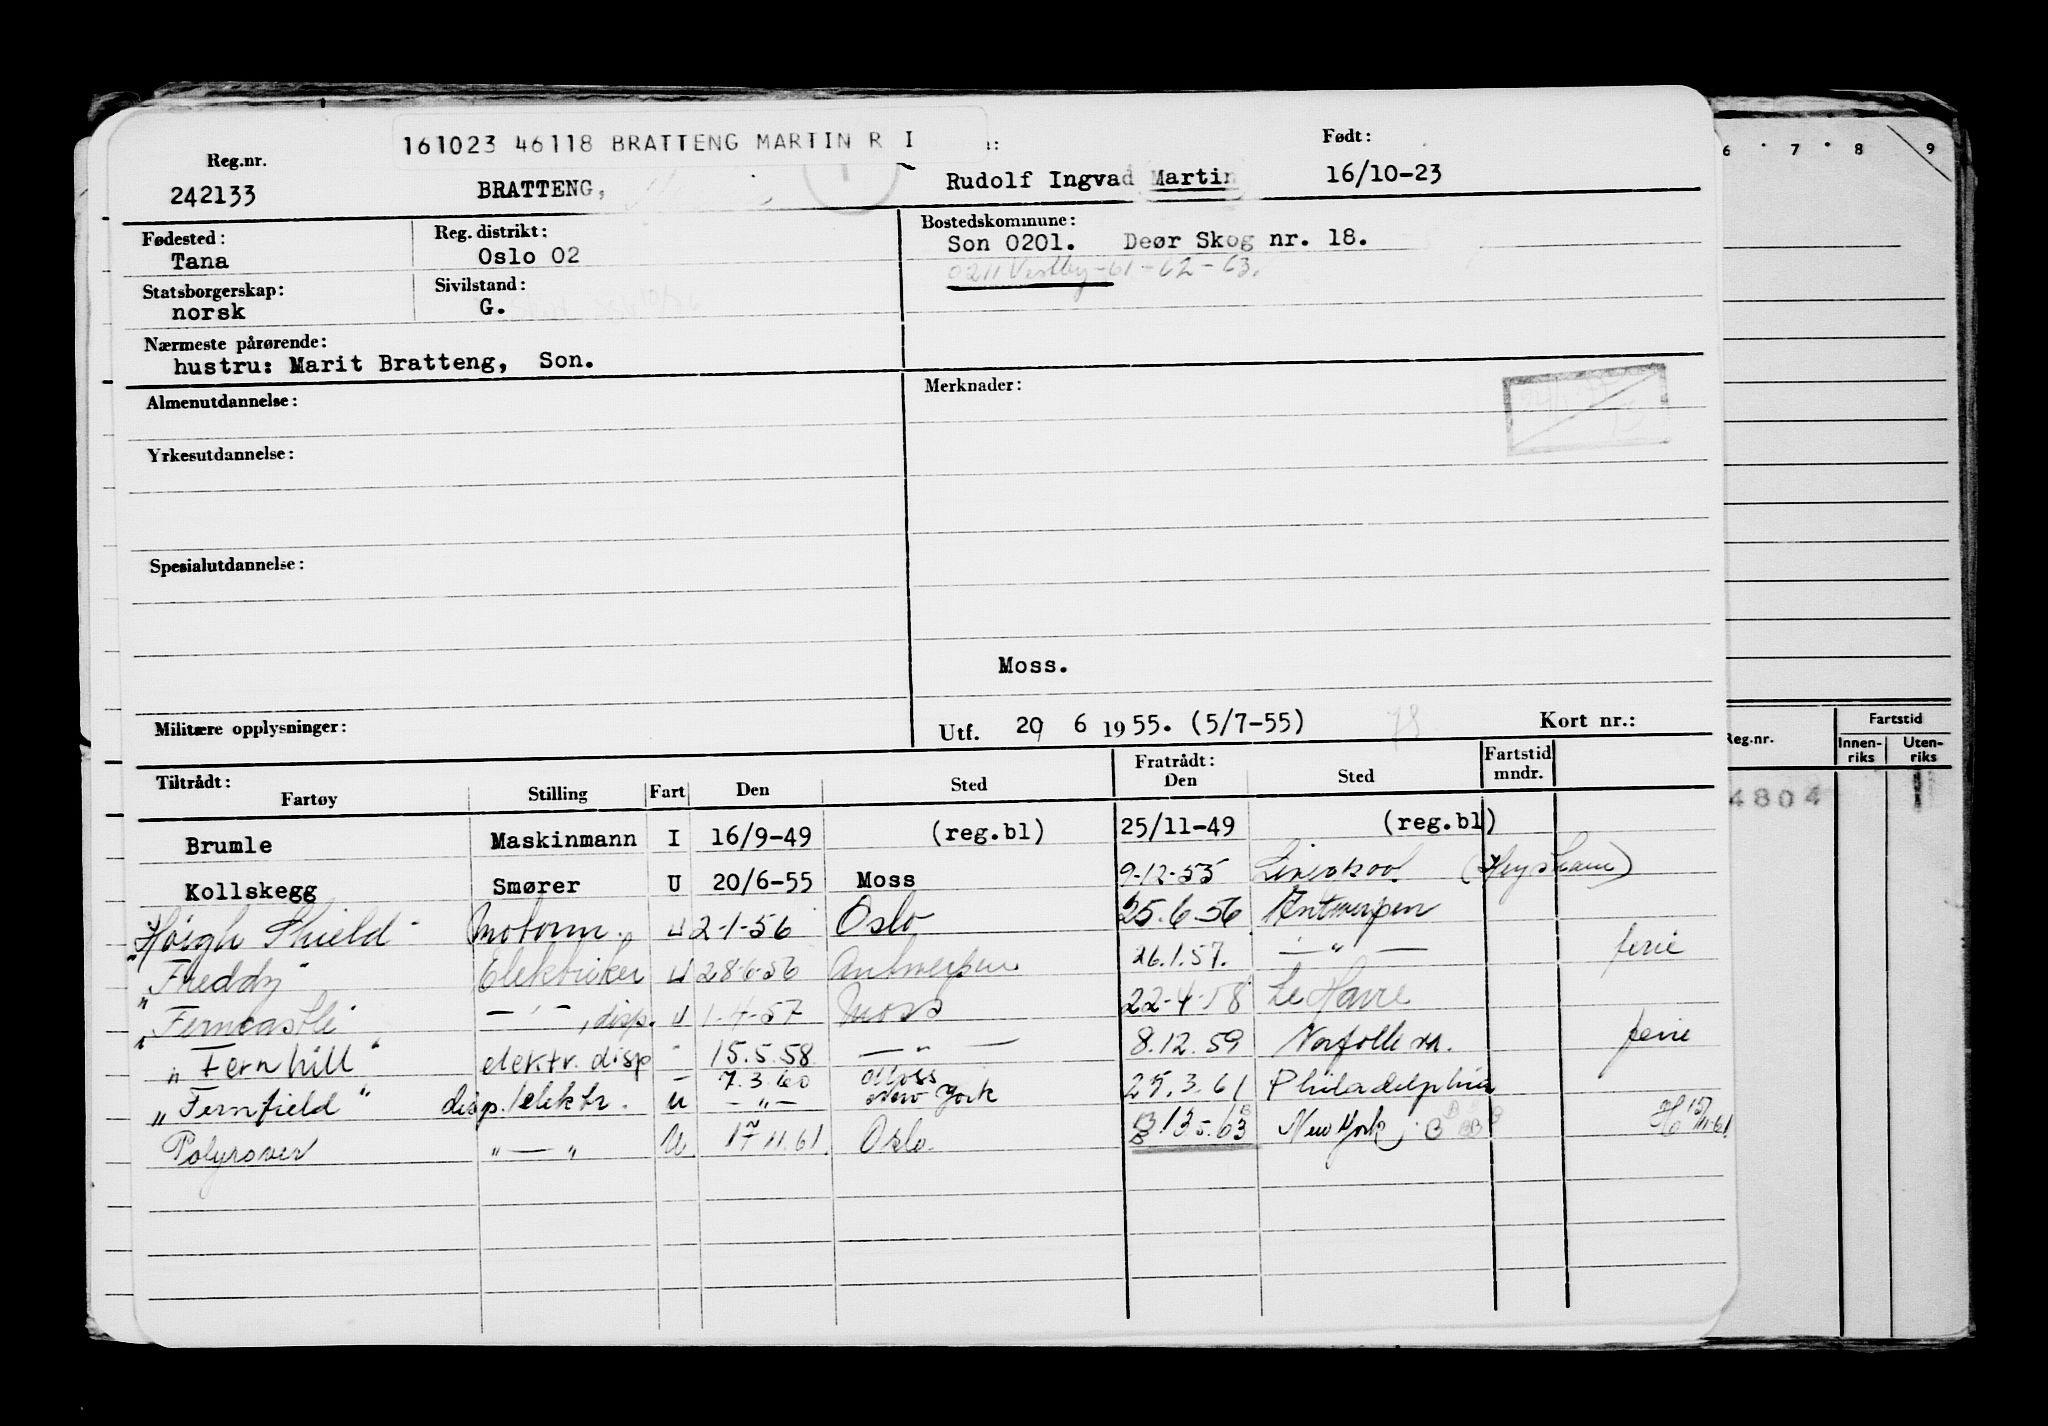 161023 46118 BRATTENG MARTIN R I
Reg.nr. Født:
242133 BRATTENG, Rudolf Ingvad Martin 16/10-23
Fødested: Reg. distrikt: Bostedskommune:
Tana Oslo 02 Son 0201. Deør Skog nr. 18.
0211 Vestby-61-62-63.
Statsborgerskap: Sivilstand:
norsk G.
Nærmeste pårørende:
hustru: Marit Bratteng, Son.
Almenutdannelse: Merknader:
Yrkesutdannelse:
Spesialutdannelse:
Moss.
Militære opplysninger: Utf. 20 6 1955. (5/7-55) 78 Kort nr.:
Tiltrådt: Fratrådt: Fartstid
Fartøy Stilling Fart Den Sted Den Sted mndr.
Brumle Maskinmann I 16/9-49 (reg.bl) 25/11-49 (reg.bl)
Kollskegg Smører U 20/6-55 Moss 9-12-55 Liverpool (Heysham)
"Höigh Shield" Motorm. U 2-1-56 Oslo 25.6.56 Antwerpen
"Freddy" Elektriker U 28-6-56 Antwerpen 26.1.57. — " — ferie
"Ferncastle — " —, disp. U 1-4-57 Moss 22-4-58 Le Havre
"Fernhill" elektr. disp " 15.5.58 — " — 8.12.59 Norfolk va. ferie
7.3.60 Moss
"Fernfield" disp./elektr. U — " — New York 25.3.61 Philadelphia
Polyrover " — " U 17 11.61 Oslo. 13 5.63 New York
6 7 8 9
Reg.nr. Fartstid
Innen- Uten-
riks riks
4804 1